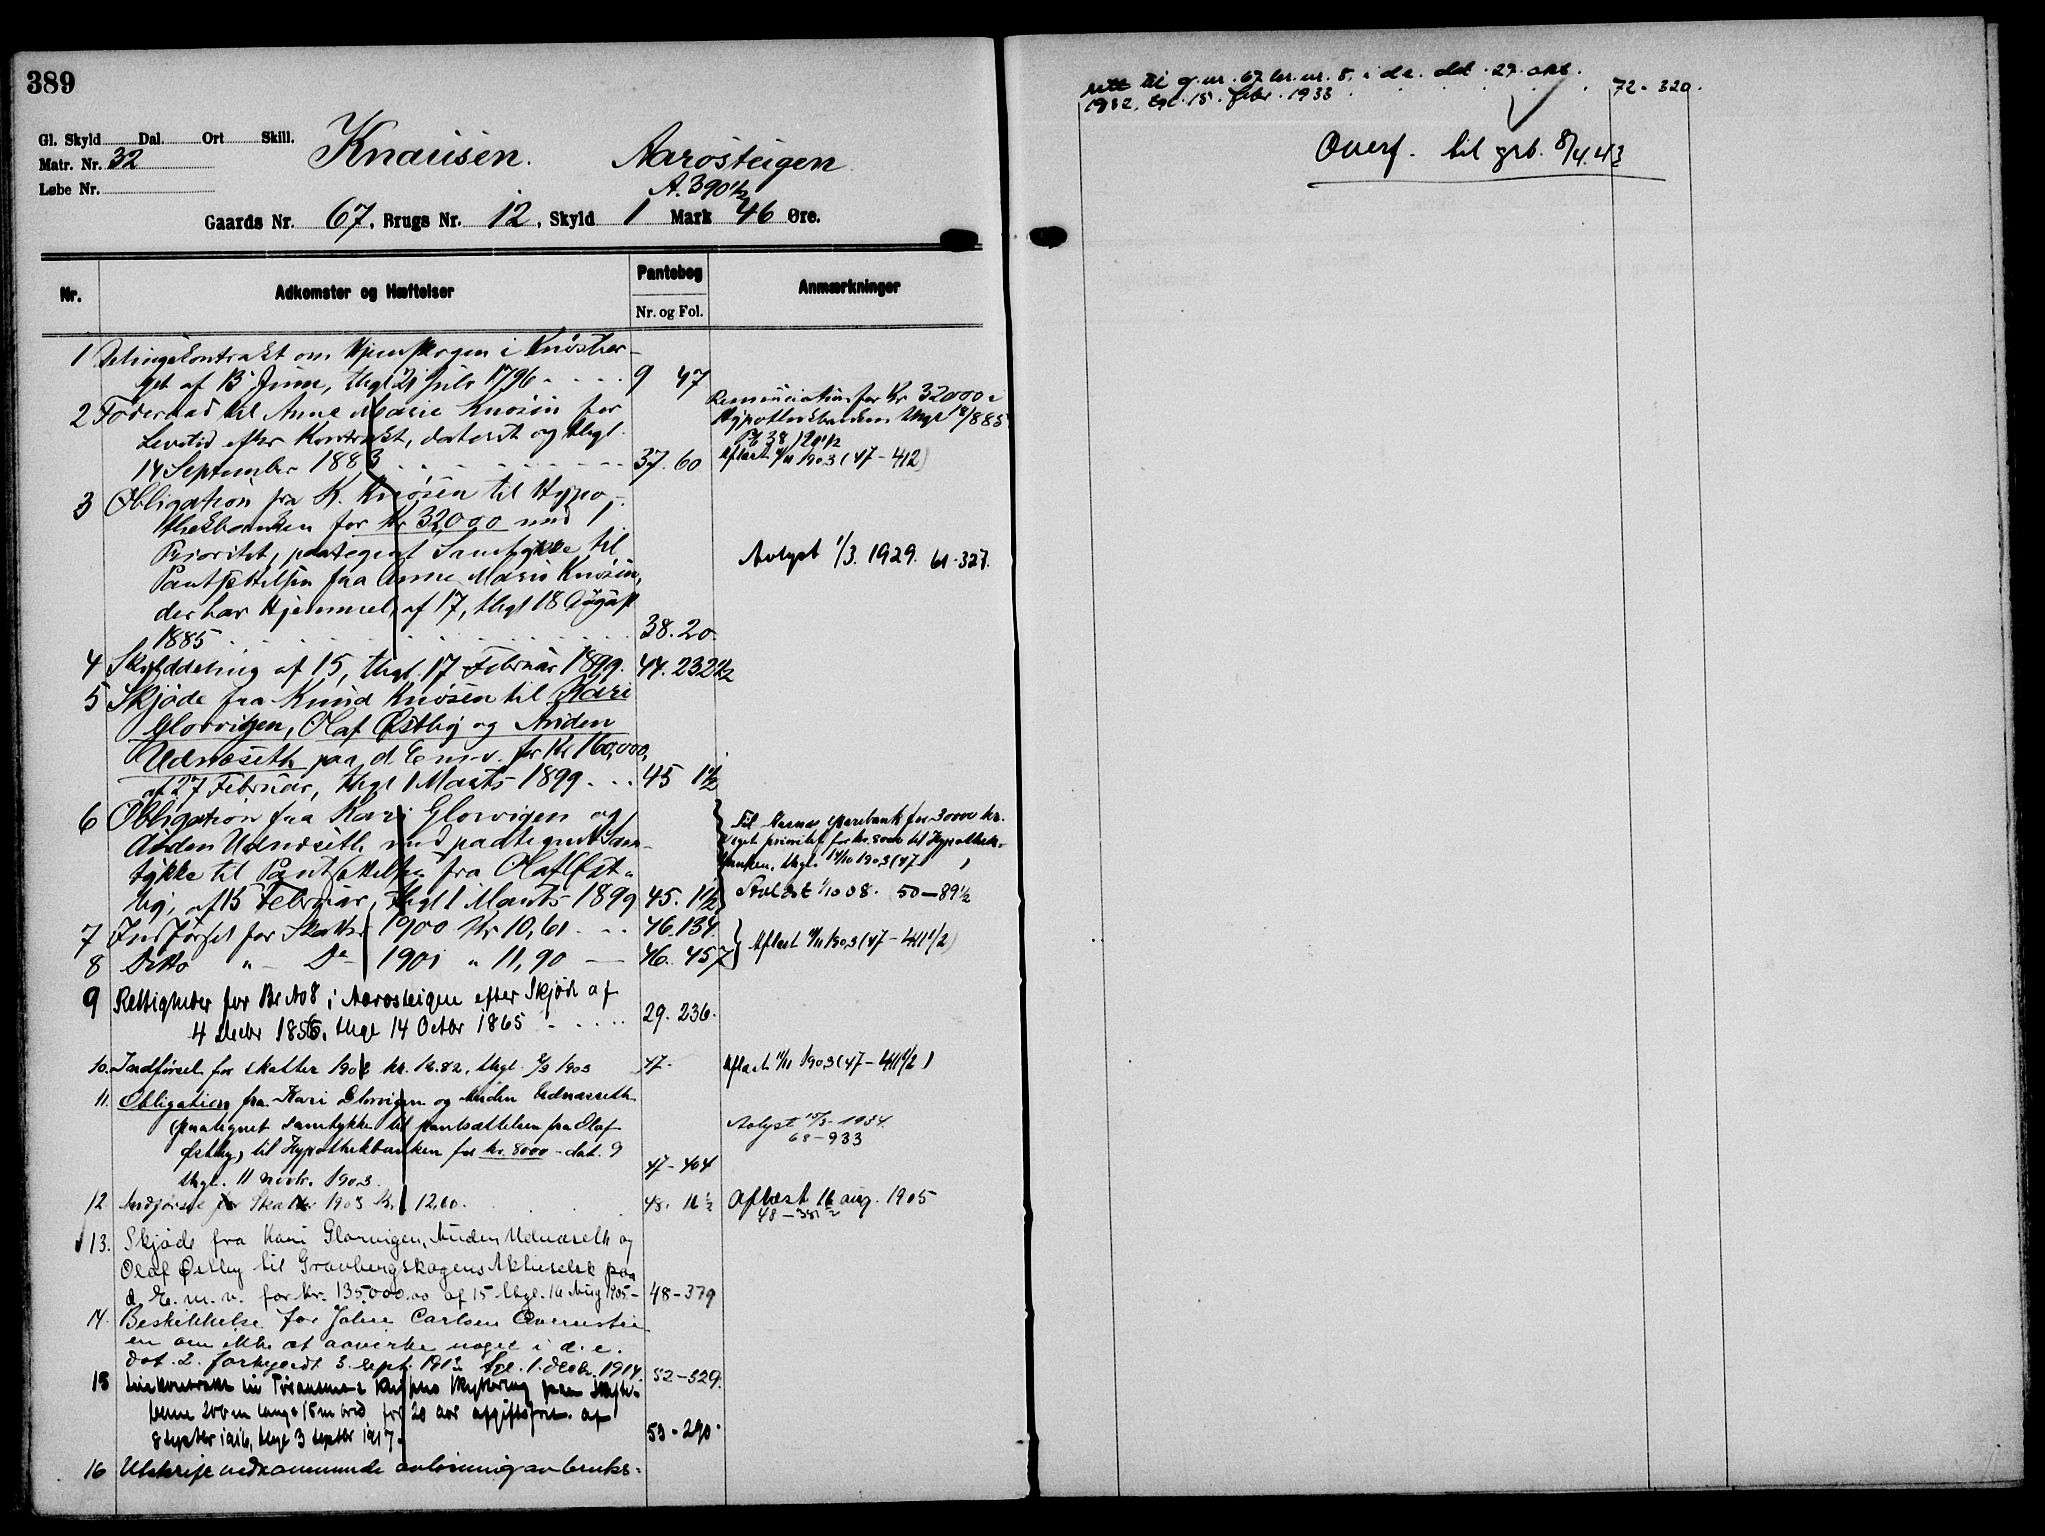 389
Gl. Skyld Dal. Ort Skill.
Matr. Nr. 32
Løbe Nr.
Knausen. Aarosteigen
A. 390 1/2
Gaards Nr. 67, Brugs Nr. 12, Skyld 1 Mark 46 Øre.
Nr. Adkomster og Hæftelser Pantebog Anmærkninger
Nr. og Fol.
1 Delingskontrakt om i Knösber-
get af 13 Juni, thgl 21 Juli 1796 9 47
2 Föderaad til Anne Marie Knosen for
Levetid efter Kontrakt, dateret og thgl.
14 September 1883 37. 60
Renunciation for Kr 32000 i
Hypothekbanken thgl 18/8 85
Pb 38 / 20 1/2
Aflæst 11/11 1903 (47-412)
3 Obligation fra K. Knösen til Hypo-
thekbanken for Kr 32000 med 1
Prioritet, paategnet Samtykke til
Pantsettelsen fra Anne Marie Knosen,
der har Hjemmel, af 17, thgl 18 August
1885 38. 20.
Avlyst 1/3. 1929. 61-327.
4 Skylddeling af 15, thgl. 17 Februar 1899. 44. 232 1/2
5 Skjöde fra Knud Knösen til Kari
Glorvigen, Olaf Østby og Auden
Udnæseth paa d. E m. v. for Kr 160,000,
af 27 Februar, thgl 1 Marts 1899 45 1 1/2
6 Obligation fra Kari Glorvigen og
Auden Udnæseth med paategnet Sam-
tykke til Pantsettelsen fra Olaf Øst-
by, af 15 Februar, thgl 1 Marts 1899 45. 1 1/2
Til Aasnes sparebank for 30000 kr.
veget prioritet for kr. 8000 til Hypothek-
banken, thgl. 14/10 1903 (47 )
Avlæst 1/10 08. 50-89 1/2
7 Indförsel for Skatter 1900 Kr 10,61 46. 134.
8 Ditto " Do 1901 " 11,90 46. 457
Aflæst 11/11 1903 (47-411 1/2)
9 Rettigheder for Br No 8 i Aarosteigen efter Skjöde af
4 Decbr 1856, thgl 14 Octbr 1865 29. 236.
10. Indförsel for skatter 1902 kr. 12.82, thgl. 2/9 1903 47-
Aflæst 11/11 1903 (47-411 1/2)
11. Obligation fra Kari Glorvigen og Auden Udnæseth
paategnet samtykke til pantsættelsen fra Olaf
Østby, til Hypothekbanken for kr. 8000 - dat. 9
thgl. 11 novbr. 1903. 47-404
Avlyst 15/3- 1934.
68-933
12. Indförsel for Skatter 1903 Kr. 12,60. 48. 11 1/2
Aflæst 16 aug. 1905
48-381 1/2
13. Skjøde fra Kari Glorvigen, Auden Udnæseth og
Olaf Østby til Gravbergskogens Aktieselsk paa
d. E. m. v. for kr. 135000.00 af 15 thgl. 16 Aug 1905- 48-379
14. Beskikkelse for Johne Carlsen
en om ikke at aavirke noget i d. e.
dat. 2. forkyndt 3. sept. 1913 tgl. 1. decbr. 1914. 52-529.
15 Leiekontrakt til
200 m lang 15 m bred for 20 aar afgiftsfrit. af
8 septbr 1916, thgl 3 septbr 1917. 53-290.
16 Utskrift vedkommende avløsning av bruks-
rett til g. nr. 67 br. nr. 8 i d. e. dat. 29. okt.
1932, tgl. 15. febr. 1933 72-320.
Overf. til grb. 8/4.43